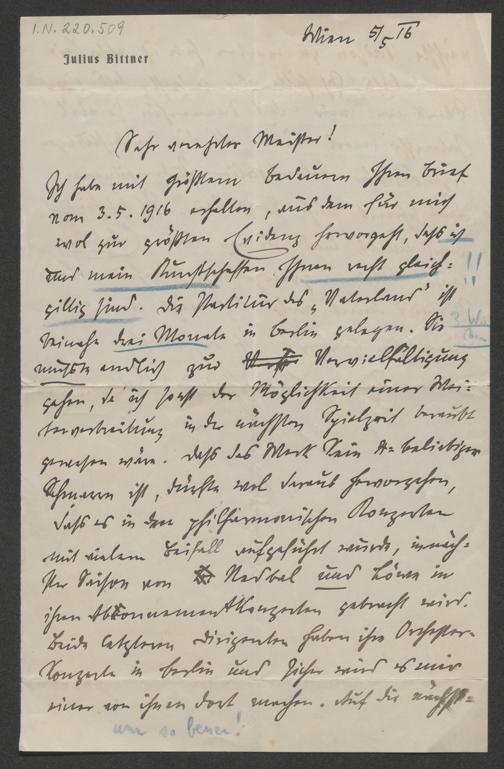 I.N. 220.509
Wien 5/5 16
Julius Bittner
Sehr verehrter Meister!
Ich habe mit größtem Bedauern Ihren Brief
vom 3.5.1916 erhalten, aus dem für mich
wol zur größten Evidenz hervorgeht, daß ich
und mein Kunstschaffen Ihnen recht gleich=
giltig sind. Die Partitur des „Vaterland" ist
!!
beinahe drei Monate in Berlin gelegen. Sie
mußte endlich zur Vervielfältigung
gehen, da ich sonst der Möglichkeit einer Wei-
terverbreitung in der nächsten Spielzeit beraubt
gewesen wäre. Daß das Werk kein beliebiger
Schmarrn ist, dürfte wol daraus hervorgehen,
daß es in den philharmonischen Konzerten
mit vielem Beifall aufgeführt wurde, in näch-
ster Saison von Nedbal und Löwe in
ihren Abonnementkonzerten gebracht wird.
Beide letzteren Dirigenten haben ihre Orchester-
konzerte in Berlin und sicher wird es mir
einer von ihnen dort machen. Auf die nächst=
um so besser!